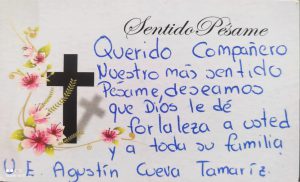 Sentido Pésame
Querido Compañero
Nuestro más sentido
Pésame, deseamos
que Dios le dé
fortaleza a usted
y a toda su familia
U.E. Agustín Cueva Tamariz.